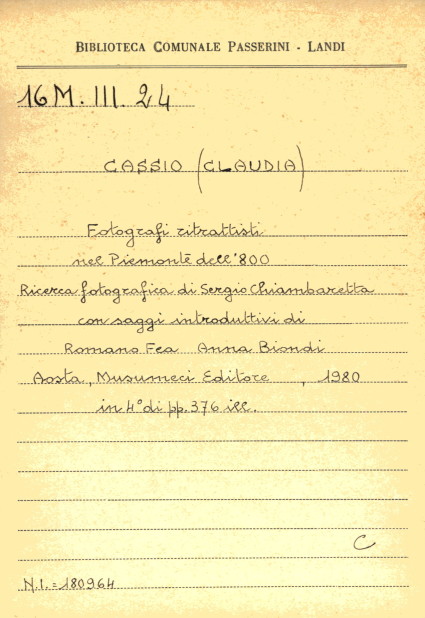 BIBLIOTECA COMUNALE PASSERINI - LANDI
16M. III. 24
CASSIO (CLAUDIA)
Fotografi ritrattisti
nel Piemonte dell'800
Ricerca fotografica di Sergio Chiambaretta
con saggi introduttivi di
Romano Fea Anna Biondi
Aosta, Musumeci Editore , 1980
in 4° di pp. 376 ill.
C
N.I. = 180964